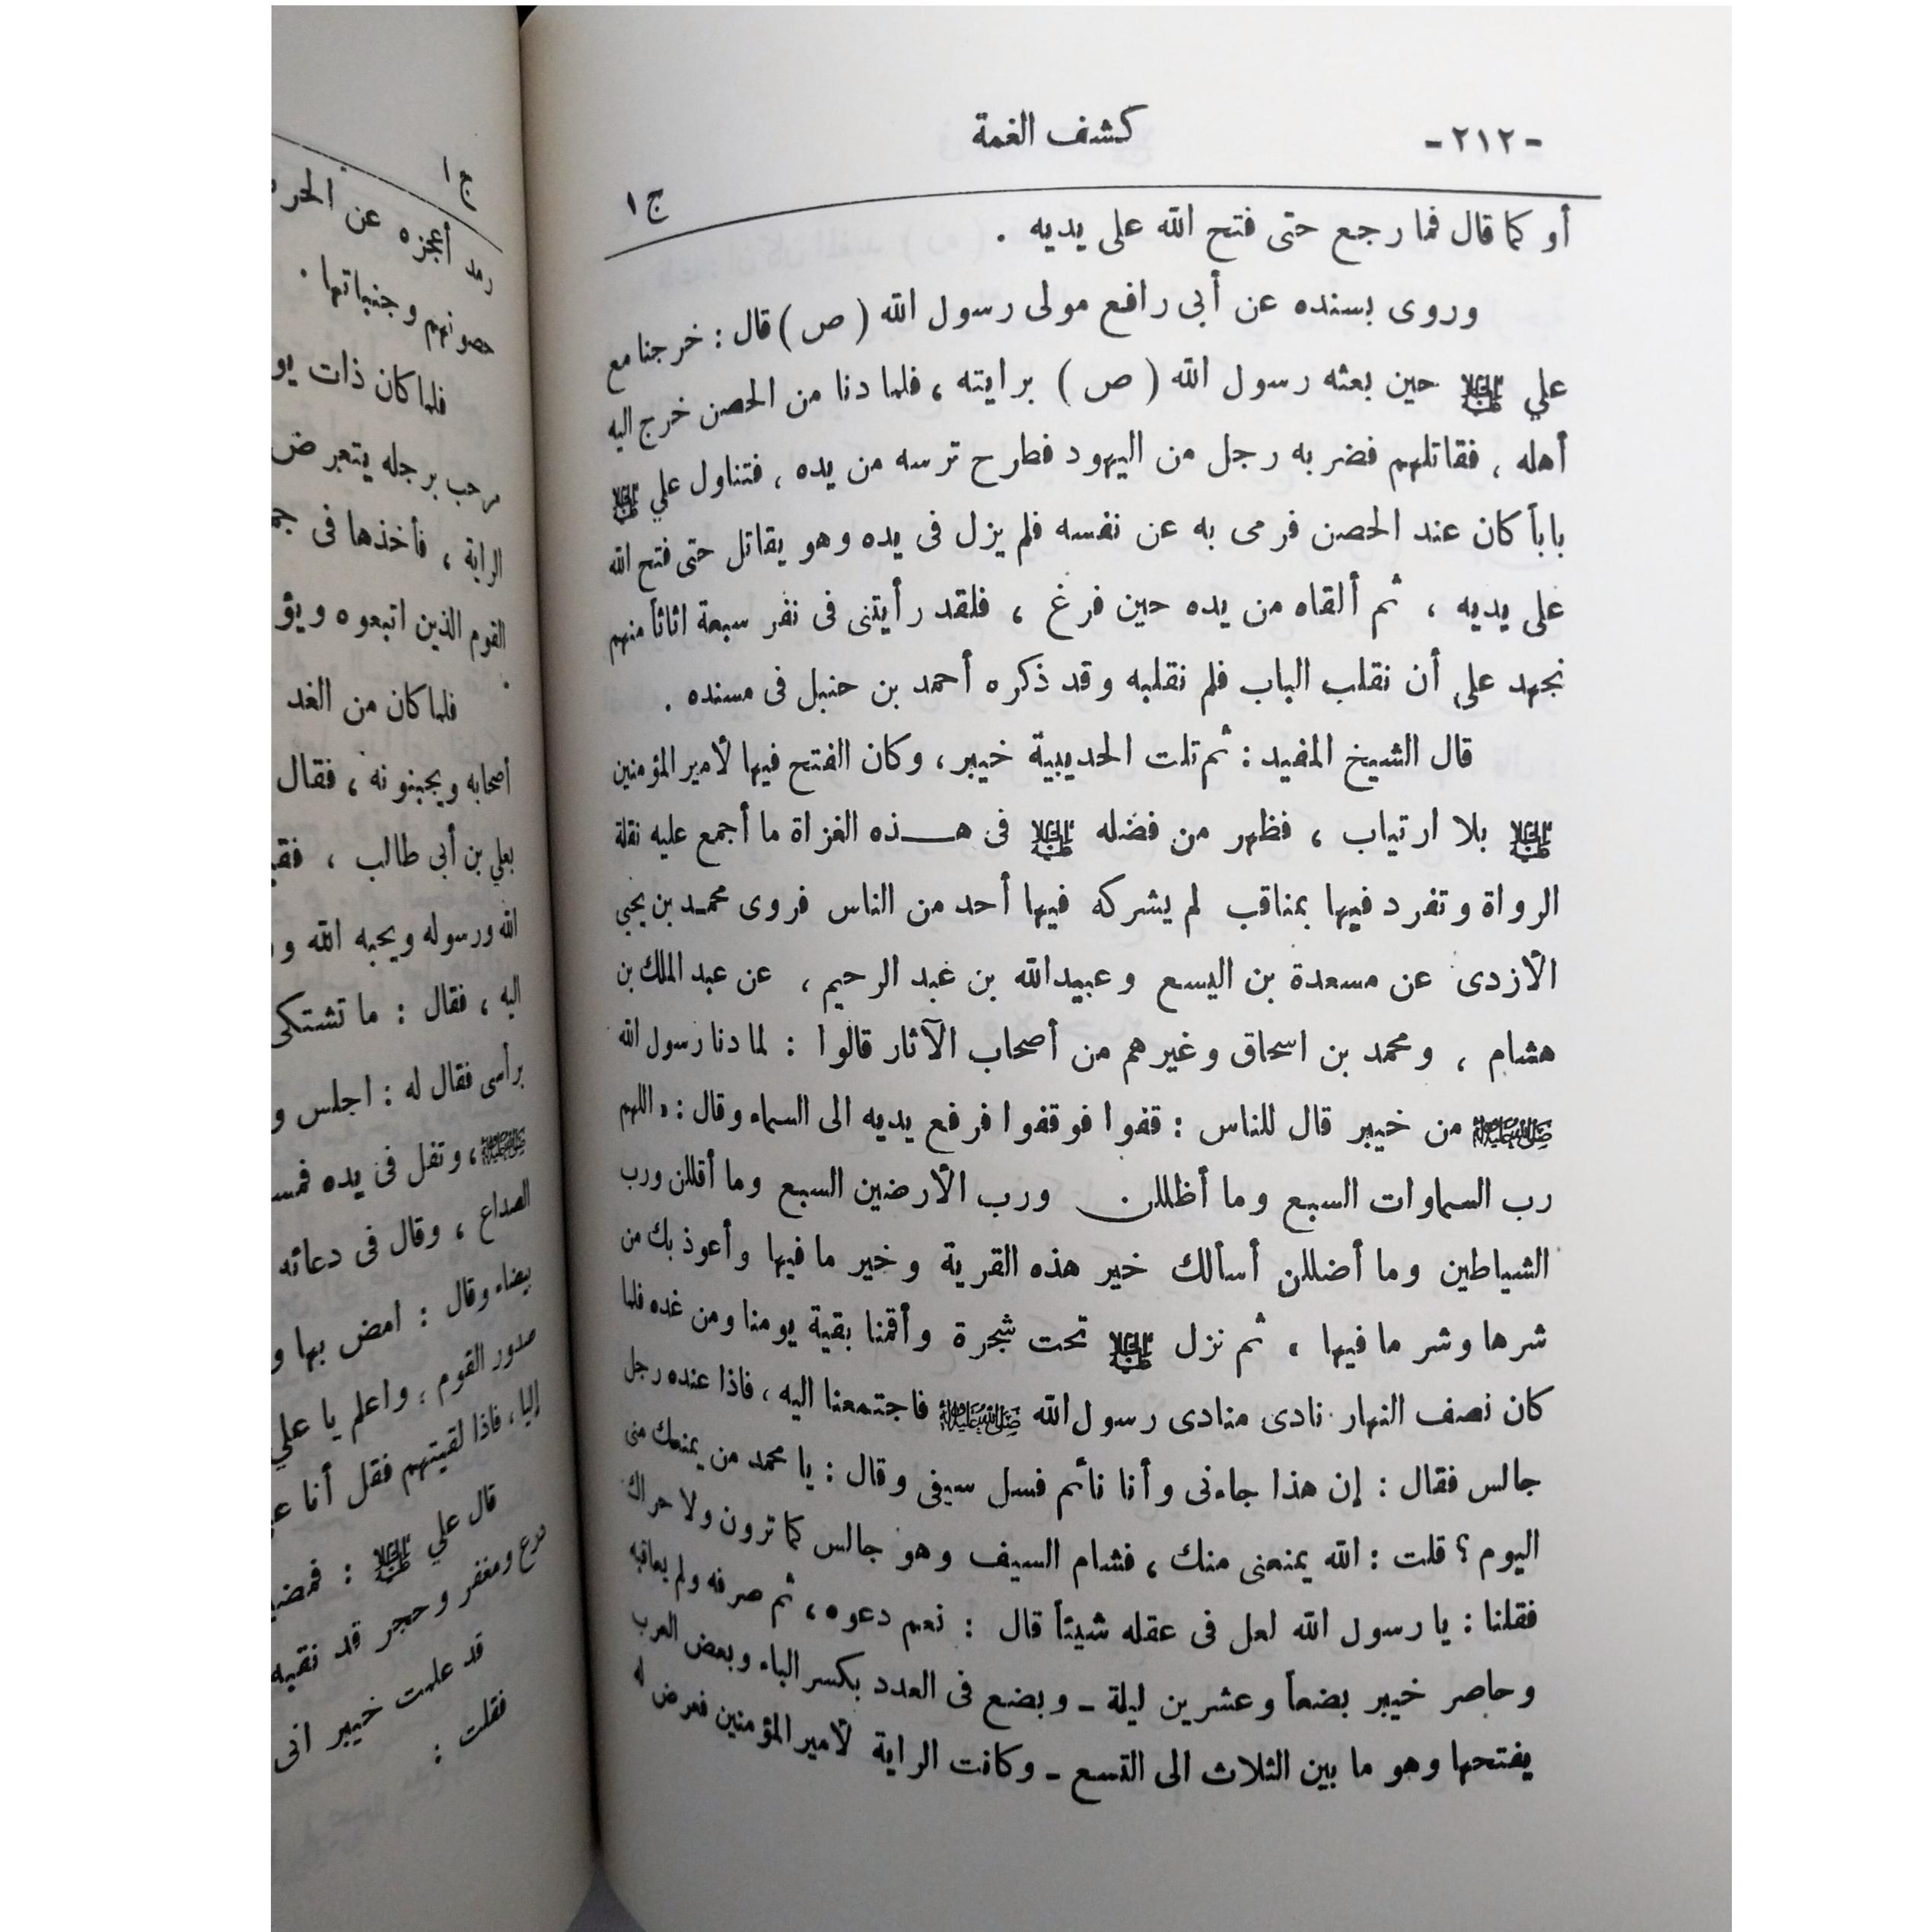 -٢١٢-
كشف الغمة
ج ١
أو كما قال فما رجع حتى فتح الله على يديه .
وروى بسنده عن أبى رافع مولى رسول الله ( ص ) قال : خرجنا مع
علي عليه السلام حين بعثه رسول الله ( ص ) برايته ، فلما دنا من الحصن خرج اليه
أهله ، فقاتلهم فضربه رجل من اليهود فطرح ترسه من يده ، فتناول علي عليه السلام
باباً كان عند الحصن فرمى به عن نفسه فلم يزل فى يده وهو يقاتل حتى فتح الله
على يديه ، ثم ألقاه من يده حين فرغ ، فلقد رأيتنى فى نفر سبعة اناثاً منهم
نجهد على أن نقلب الباب فلم نقلبه وقد ذكره أحمد بن حنبل فى مسنده .
قال الشيخ المفيد : ثم تلت الحديبية خيبر ، وكان الفتح فيها لأمير المؤمنين
عليه السلام بلا ارتياب ، فظهر من فضله عليه السلام فى هــذه الغزاة ما أجمع عليه نقلة
الرواة وتفرد فيها بمناقب لم يشركه فيها أحد من الناس فروى محمد بن يحيى
الأزدى عن مسعدة بن اليسع وعبيدالله بن عبد الرحيم ، عن عبد الملك بن
هشام ، ومحمد بن اسحاق وغيرهم من أصحاب الآثار قالوا : لما دنا رسول الله
صلى الله عليه وآله من خيبر قال للناس : قفوا فوقفوا فرفع يديه الى السماء وقال : « اللهم
رب السماوات السبع وما أظللن ورب الأرضين السبع وما أقللن ورب
الشياطين وما أضللن أسألك خير هذه القرية وخير ما فيها وأعوذ بك من
شرها وشر ما فيها ، ثم نزل عليه السلام تحت شجرة وأقمنا بقية يومنا ومن غده فلما
كان نصف النهار نادى منادى رسول الله صلى الله عليه وآله فاجتمعنا اليه ، فاذا عنده رجل
جالس فقال : إن هذا جاءنى وأنا نائم فسل سيفى وقال : يا محمد من يمنعك منى
اليوم ؟ قلت : الله يمنعنى منك ، فشام السيف وهو جالس كما ترون ولا حراك
فقلنا : يا رسول الله لعل فى عقله شيئاً قال : نعم دعوه ، ثم صرفه ولم يعاقبه
وحاصر خيبر بضعاً وعشرين ليلة ـ وبضع فى العدد بكسر الباء وبعض العرب
يفتحها وهو ما بين الثلاث الى التسع ـ وكانت الراية لأمير المؤمنين فعرض له
ج ١
رمد أعجزه عن الحر
حصونهم وجنباتها .
فلما كان ذات يو
مرحب برجله يتعرض
الراية ، فأخذها فى
القوم الذين اتبعوه ويؤ
فلما كان من الغد
أصحابه ويجبنونه ، فقال
بعلي بن أبى طالب ، فقي
الله ورسوله ويحبه الله و
اليه ، فقال : ما تشتكى
برأسى فقال له : اجلس و
صلى الله عليه وآله ، وتفل فى يده فمس
الصداع ، وقال فى دعائه
بيضاء وقال : امض بها و
صدور القوم ، واعلم يا علي
إليا ، فاذا لقيتهم فقل أنا
قال علي عليه السلام : فمضي
درع ومغفر وحجر قد نقبه
قد علمت خيبر انى
فقلت :